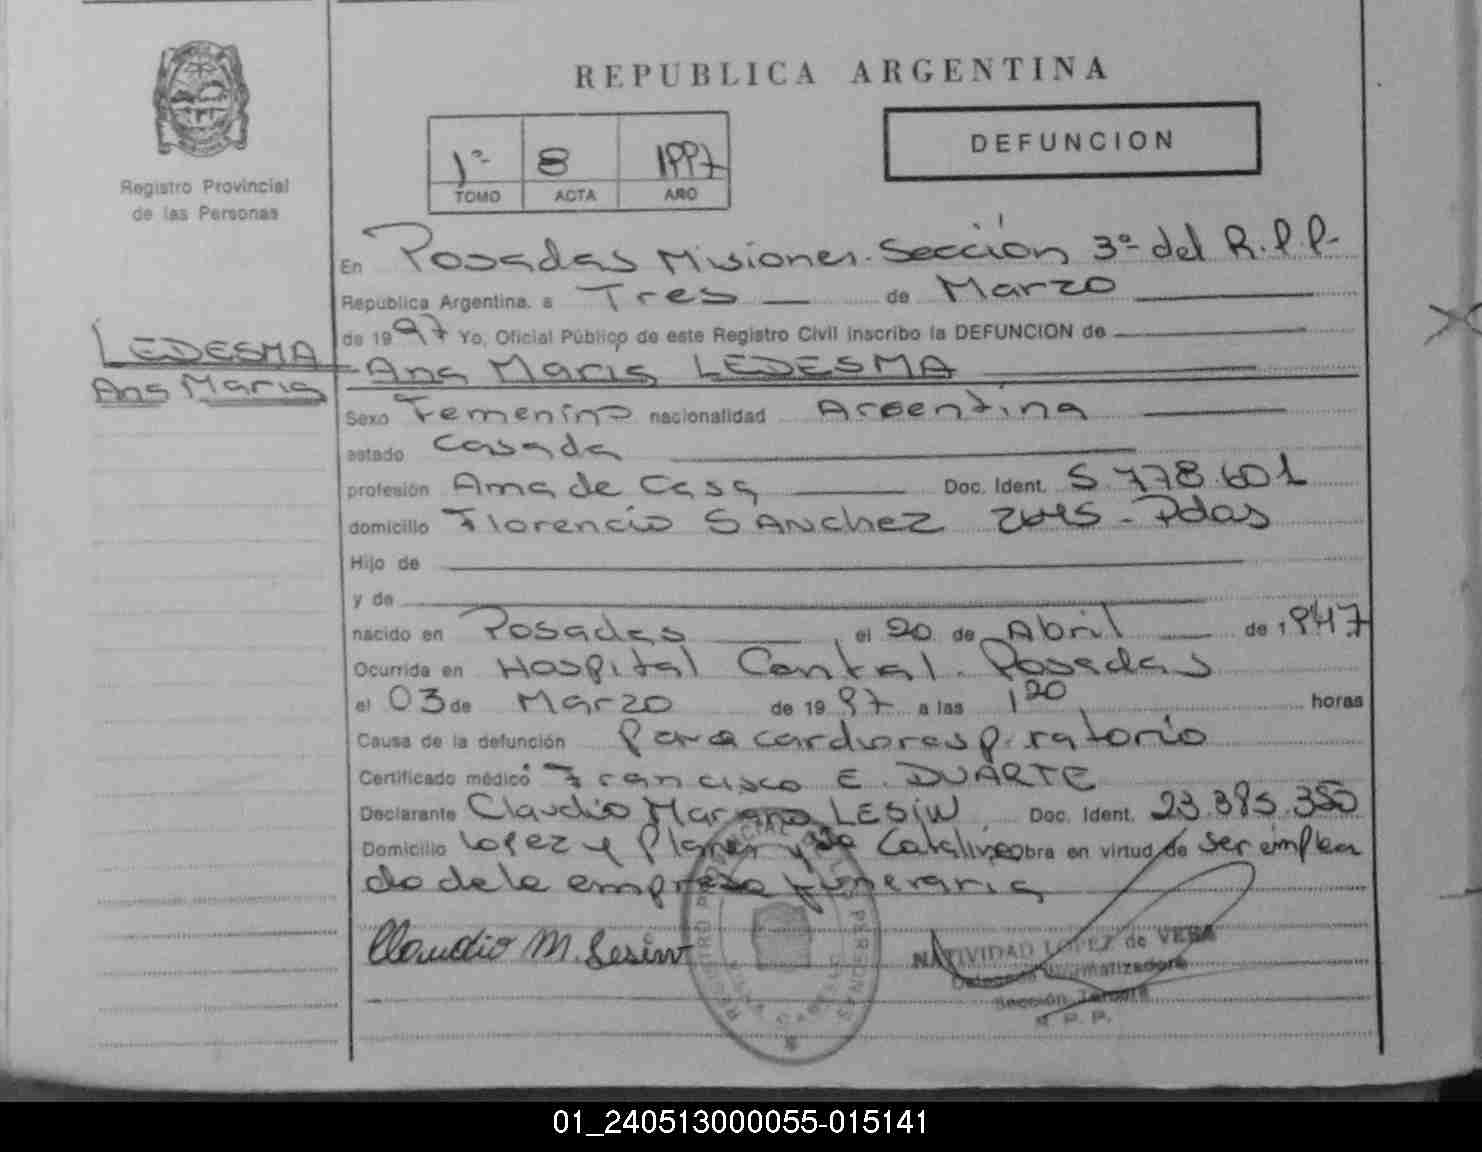 REPUBLICA ARGENTINA
Registro Provincial
de las Personas
1º 8 1997
TOMO ACTA AÑO
DEFUNCION
LEDESMA
Ana Maria
En Posadas Misiones. Sección 3º del R.P.P.
Republica Argentina, a Tres de Marzo
de 1997 Yo, Oficial Público de este Registro Civil inscribo la DEFUNCION de
Ana Maria LEDESMA
Sexo Femenino nacionalidad Argentina
estado Casada
profesión Ama de Casa Doc. Ident. 5.778.601
domicilio Florencio SANchez 2645 - Pdas
Hijo de
y de
nacido en Posadas el 20 de Abril de 1947
Ocurrida en Hospital Central. Posadas
el 03 de Marzo de 1997 a las 1 20 horas
Causa de la defunción Paro cardiorespiratorio
Certificado médico Francisco E. DUARTE
Declarante Claudio Mariano LESiW Doc. Ident. 23.385.350
Domicilio Lopez y Planes y Sta Catalina obra en virtud de ser emplea
do de la empresa funeraria
Claudio M. Lesiw
NATIVIDAD LOPEZ de VERA
Sección Tercera
R. P. P.
01_240513000055-015141